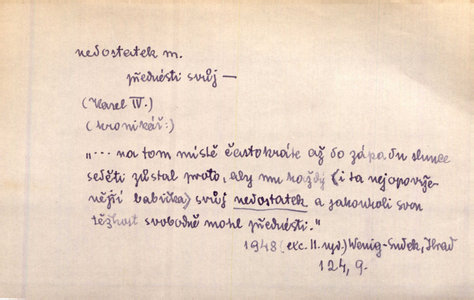 nedostatek m.
přednésti svůj —
(Karel IV.)
(kronikář:)
"... na tom místě častokráte až do západu slunce
seděti zůstal proto, aby mu každý (i ta nejopovrže-
nější babička) svůj nedostatek a jakoukoli svou
těžkost svobodně mohl přednésti."
1948 (exc. II. vyd.) Wenig-Sudek, Hrad
124, 9.